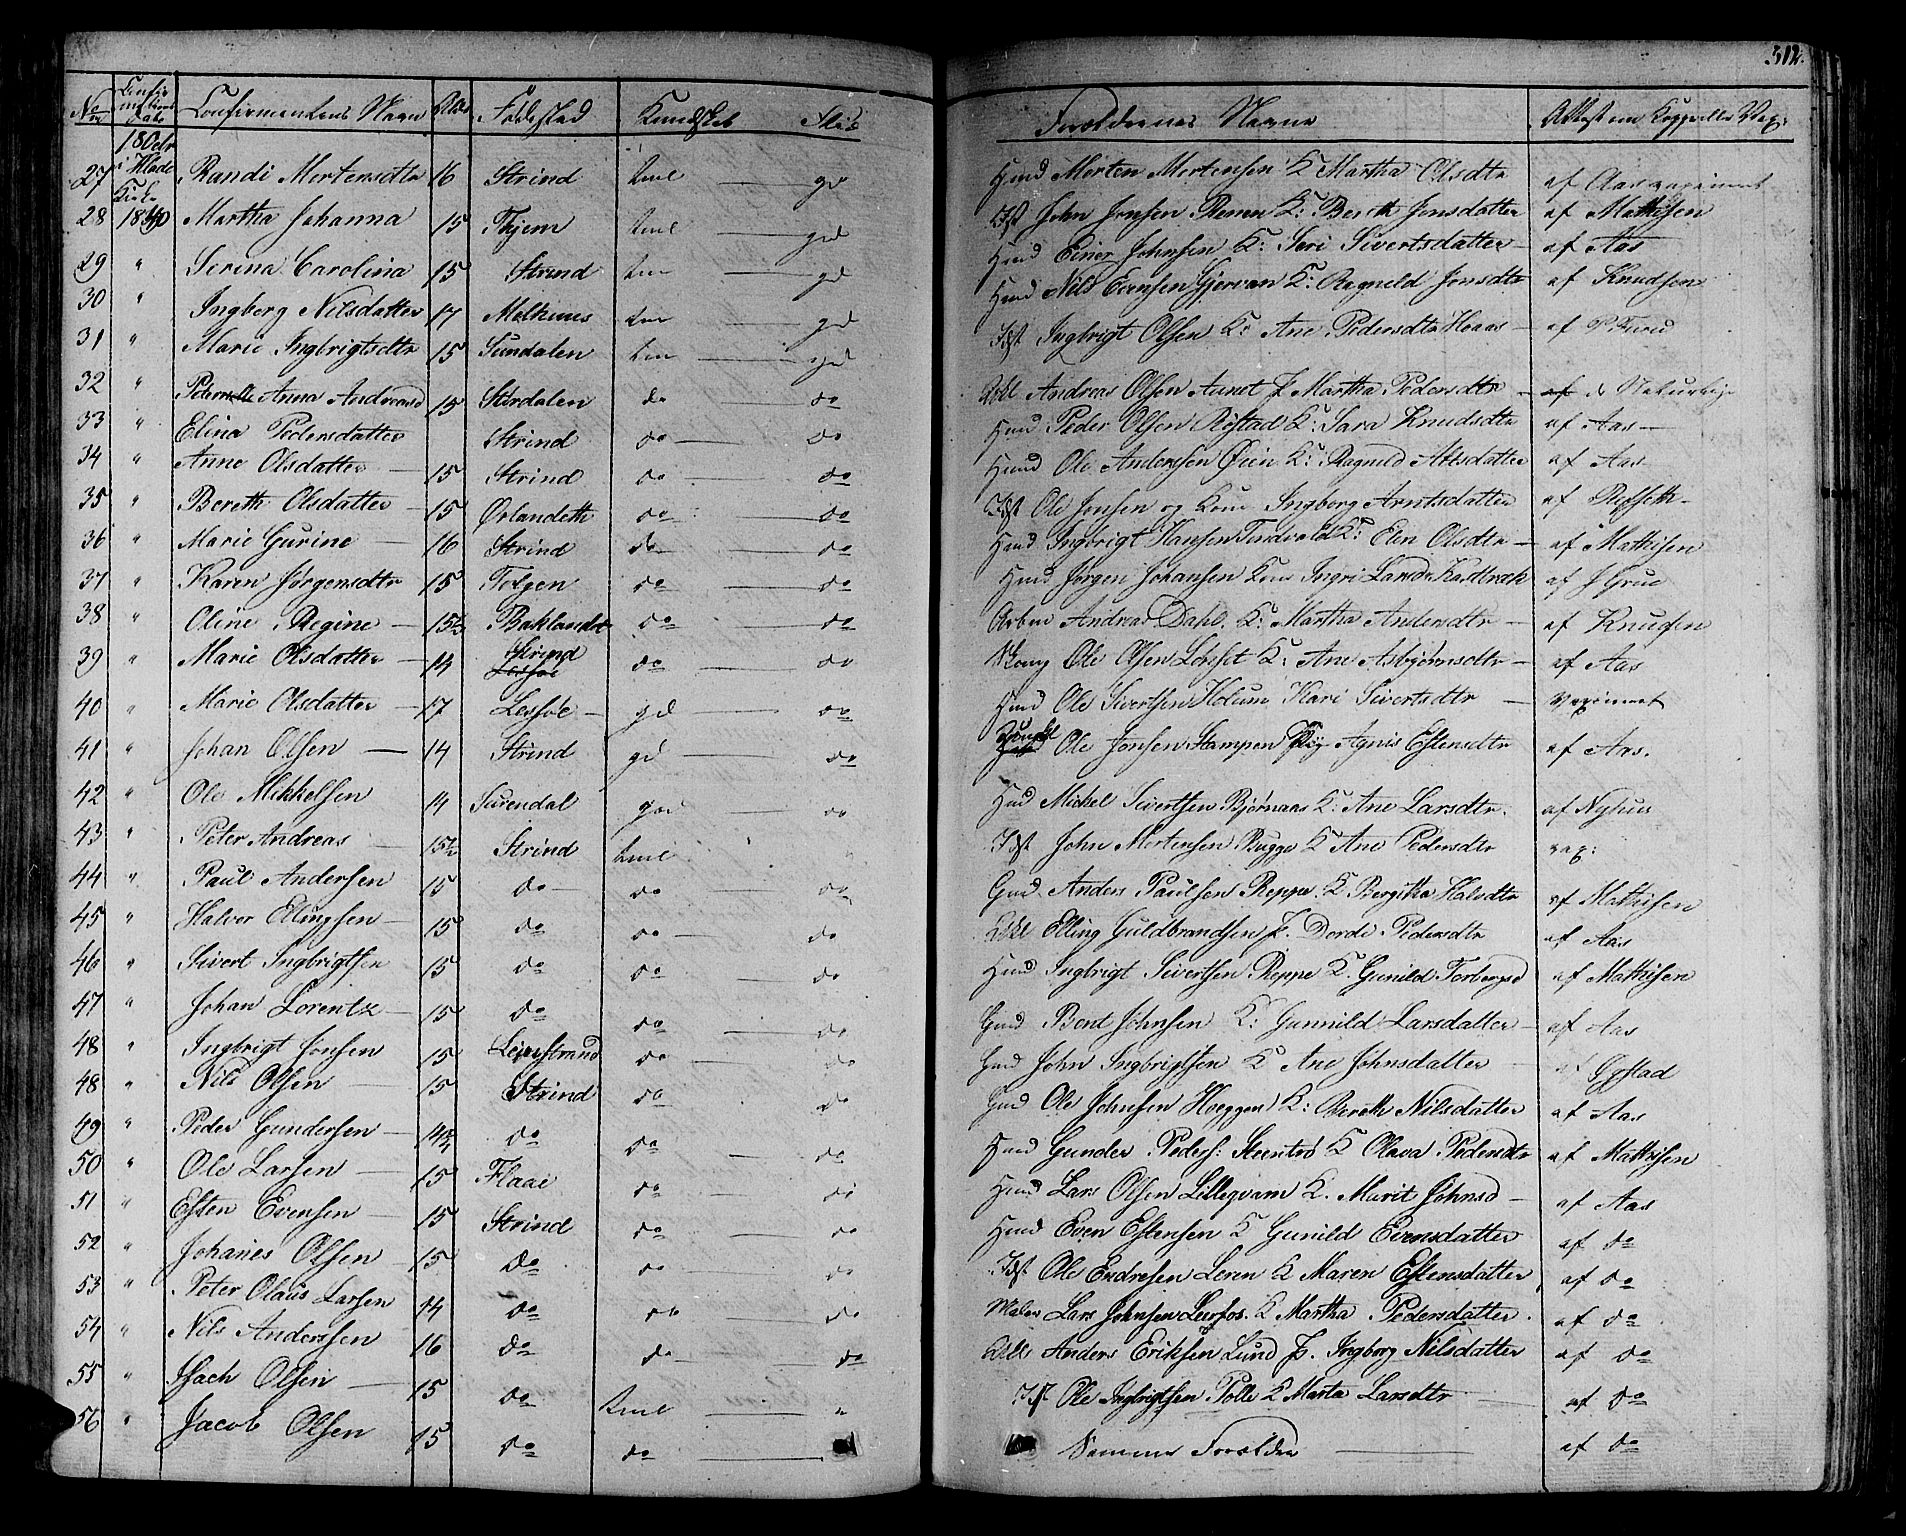 312.
No Confirmations Dato Confirmandens Navn Alder Fødested Kundskab Flid Forældrenes Navne Attest om Koppeller Vax:
27 18 Octr i Hlade Kirke Randi Mortensdtr 16 Strind tml — gd Huusmd Morten Mortensen K Martha Olsdtr af Aas
28 1840 Martha Johanna 15 Thjem tml — gd Idst John Jonsen K: Bereth Jonsdatter af Mathisen
29 " Serina Carolina 15 Strind tml — gd Huusmd Einer Johnsen K: Seri Sivertsdatter — af Aas
30 " Ingborg Nilsdatter 17 Melhuus tml — gd Huusmd Nils Evensen Gjervan K: Ragnild Jonsdtr af Knudsen
31 " Marie Ingbrigtsdtr 15 Sundalen tml — gd Idst Ingbrigt Olsen K: Ane Pedersdtr Haas — af P. Furu
32 " Anna Andreasd 15 Stordalen do — do Andreas Olsen Aunet F. Martha Pedersdtr — de Naturlige
33 " Elina Pedersdatter Strind do — do Hmd Peder Olsen Røstad K: Sara Knudsdtr af Aas —
34 " Anne Olsdatter — 15 Strind do — do Hmd Ole Andersen Øien K: Ragnild Atlsdatter af Aas
35 " Bereth Olsdatter — 15 Ørlandeth do — do Idst Ole Jonsen og Kone Ingborg Arntsdatter af Risseth —
36 " Marie Gurine — 16 Strind do — do Hmd Ingbrigt Hansen Tindvold K: Elen Olsdtr — af Mathisen
37 " Karen Jørgensdtr 15 Tolgen do — do Hmd Jørgen Johansen Kone Ingri Larsdr Kastbrek af J Grue
38 " Oline Regine — 15½ Baklandet do — do Arben Andreas Dahl. K: Martha Andersdtr — af Knudsen
39 " Marie Olsdatter — 14 Strind do — do Ole Olsen Lønset K: Ane Asbjørnsdtr — af Aas
40 " Marie Olsdatter — 17 Lessøe — gd — do Hmd Ole Sivertsen Holum Kari Sivertsdtr — Vaxineret
41 " Johan Olsen — 14 Strind gd — do Ole Jonsen Stampen Agnis Estensdtr af Aas.
42 " Ole Mikkelsen 14 Surendal god — do Hmd Mickel Sivertsen Bjørnaas K: Ane Larsdtr. af Nyhus
43 " Peter Andreas — 15½ Strind tml Idst John Mortensen Bugge K Ane Pedersdtr vax:
44 " Paul Andersen 15 do — do — do Gmd Anders Paulsen Reppe. K Bergitha Halvdtr af Mathisen
45 " Halvor Ellingsen — 15 do do — do Elling Guldbrandsen F. Dordi Pedersdtr af Aas
46 " Sivert Ingbrigtsen 15 do do — do Hmd Ingbrigt Sivertsen Reppe K. Gunild Torbergsd af Mathisen
47 " Johan Lorentz — 15 do do — do Gmd Bent Johnsen K: Gunnild Larsdatter — af Aas
48 " Ingbrigt Jonsen 15 Leinstrand do — do Gmd John Ingbrigtsen K Ane Johnsdatter — af Egstad
48 " Nils Olsen — 15 Strind do — do Gmd Ole Johnsen Hoeggen K: Bereth Nilsdatter af Aas
49 " Peder Gundersen — 14½ do do — do Hmd Gunder Peders: Steentrø K Olava Pedersdtr af Mathisen
50 " Ole Larsen — 15 Flaae do — do Hmd Lars Olsen Lillegvam K. Marit Johnsd — af Aas
51 " Esten Evensen — 15 Strind do — do Hmd Even Estensen K Gunild Evensdatter af do
52 " Johanes Olsen — 15 do do — do Idst Ole Endresen Leren K Maren Estensdatter af do
53 " Peter Olaus Larsen 14 do do — do Maler Lars Johnsen Leerfos. K Martha Pedersdatter. af do
54 " Nils Anderssen 16 do do — do Anders Eriksen Lund F. Ingborg Nilsdatter af do
55 " Isach Olsen — 15 do tml — " Idst Ole Ingbrigtsen Rolle K Marta Larsdtr — af do
56 " Jacob Olsen 15 do do — Samme Forældre — af do